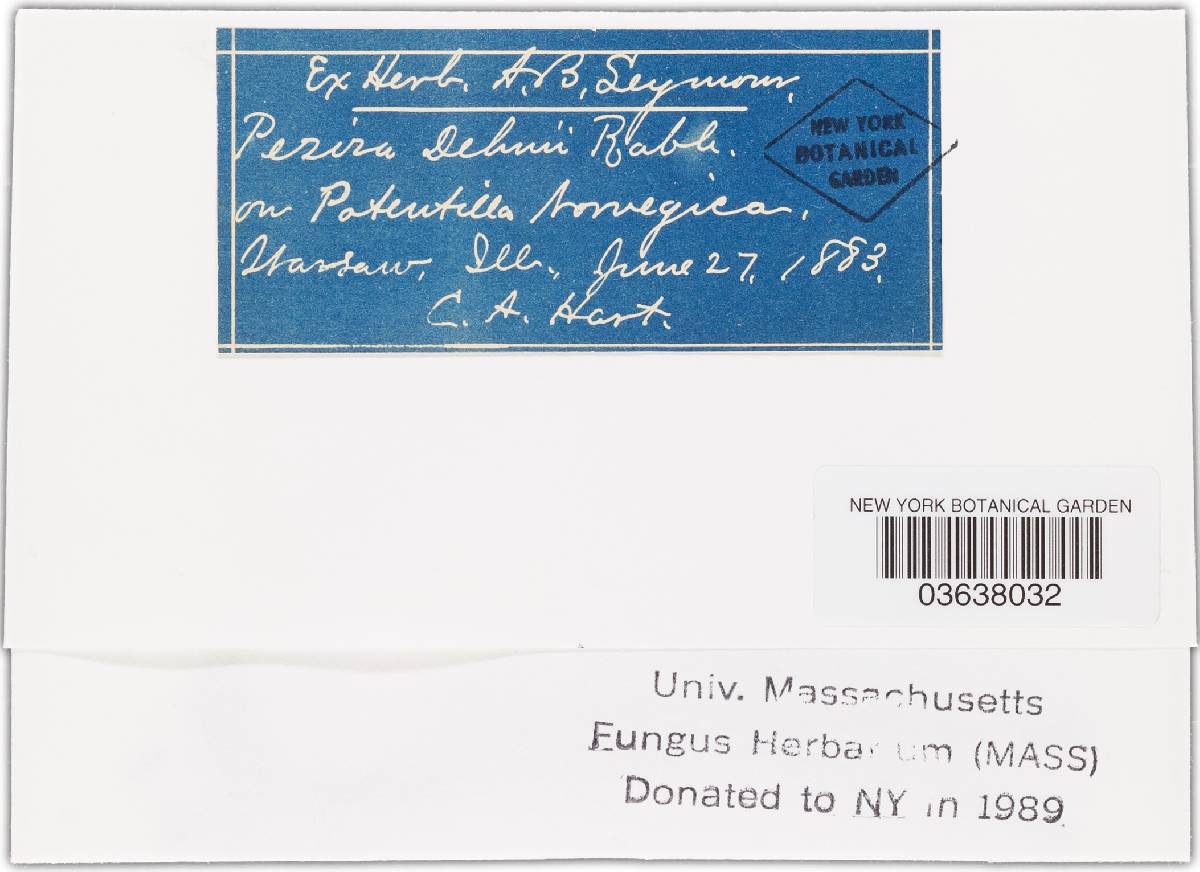 Ex Herb. A. B. Seymour.
Peziza Dehnii Rabh.
on Potentilla Norvegica,
Warsaw, Ill., June 27, 1883.
C. A. Hart.
NEW YORK
BOTANICAL
GARDEN
NEW YORK BOTANICAL GARDEN
03638032
Univ. Massachusetts
Fungus Herbarium (MASS)
Donated to NY in 1989